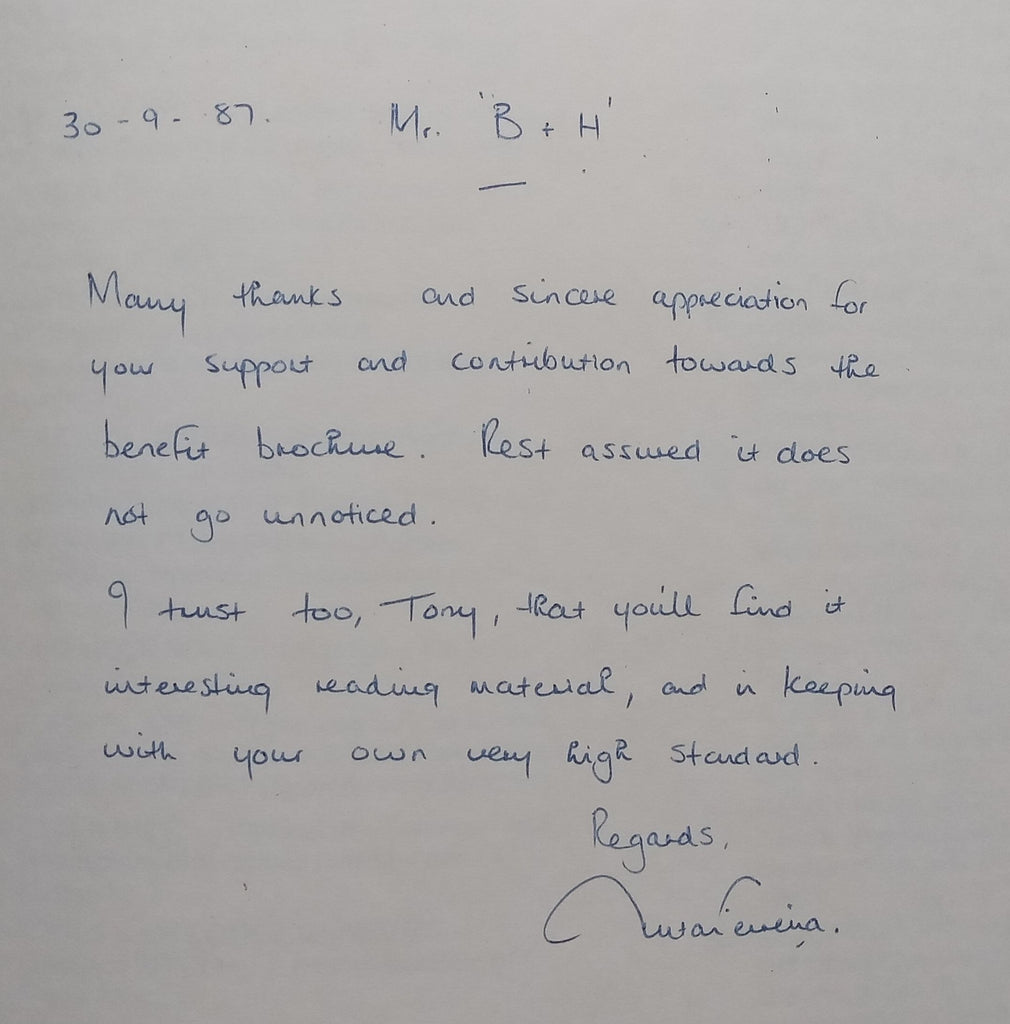 30-9-87. Mr. "B + H'
Many thanks and sincere appreciation for
your support and contribution towards the
benefit brochure. Rest assured it does
not go unnoticed.
I trust too, Tony, that you'll find it
interesting reading material, and in keeping
with your own very high standard.
Regards,